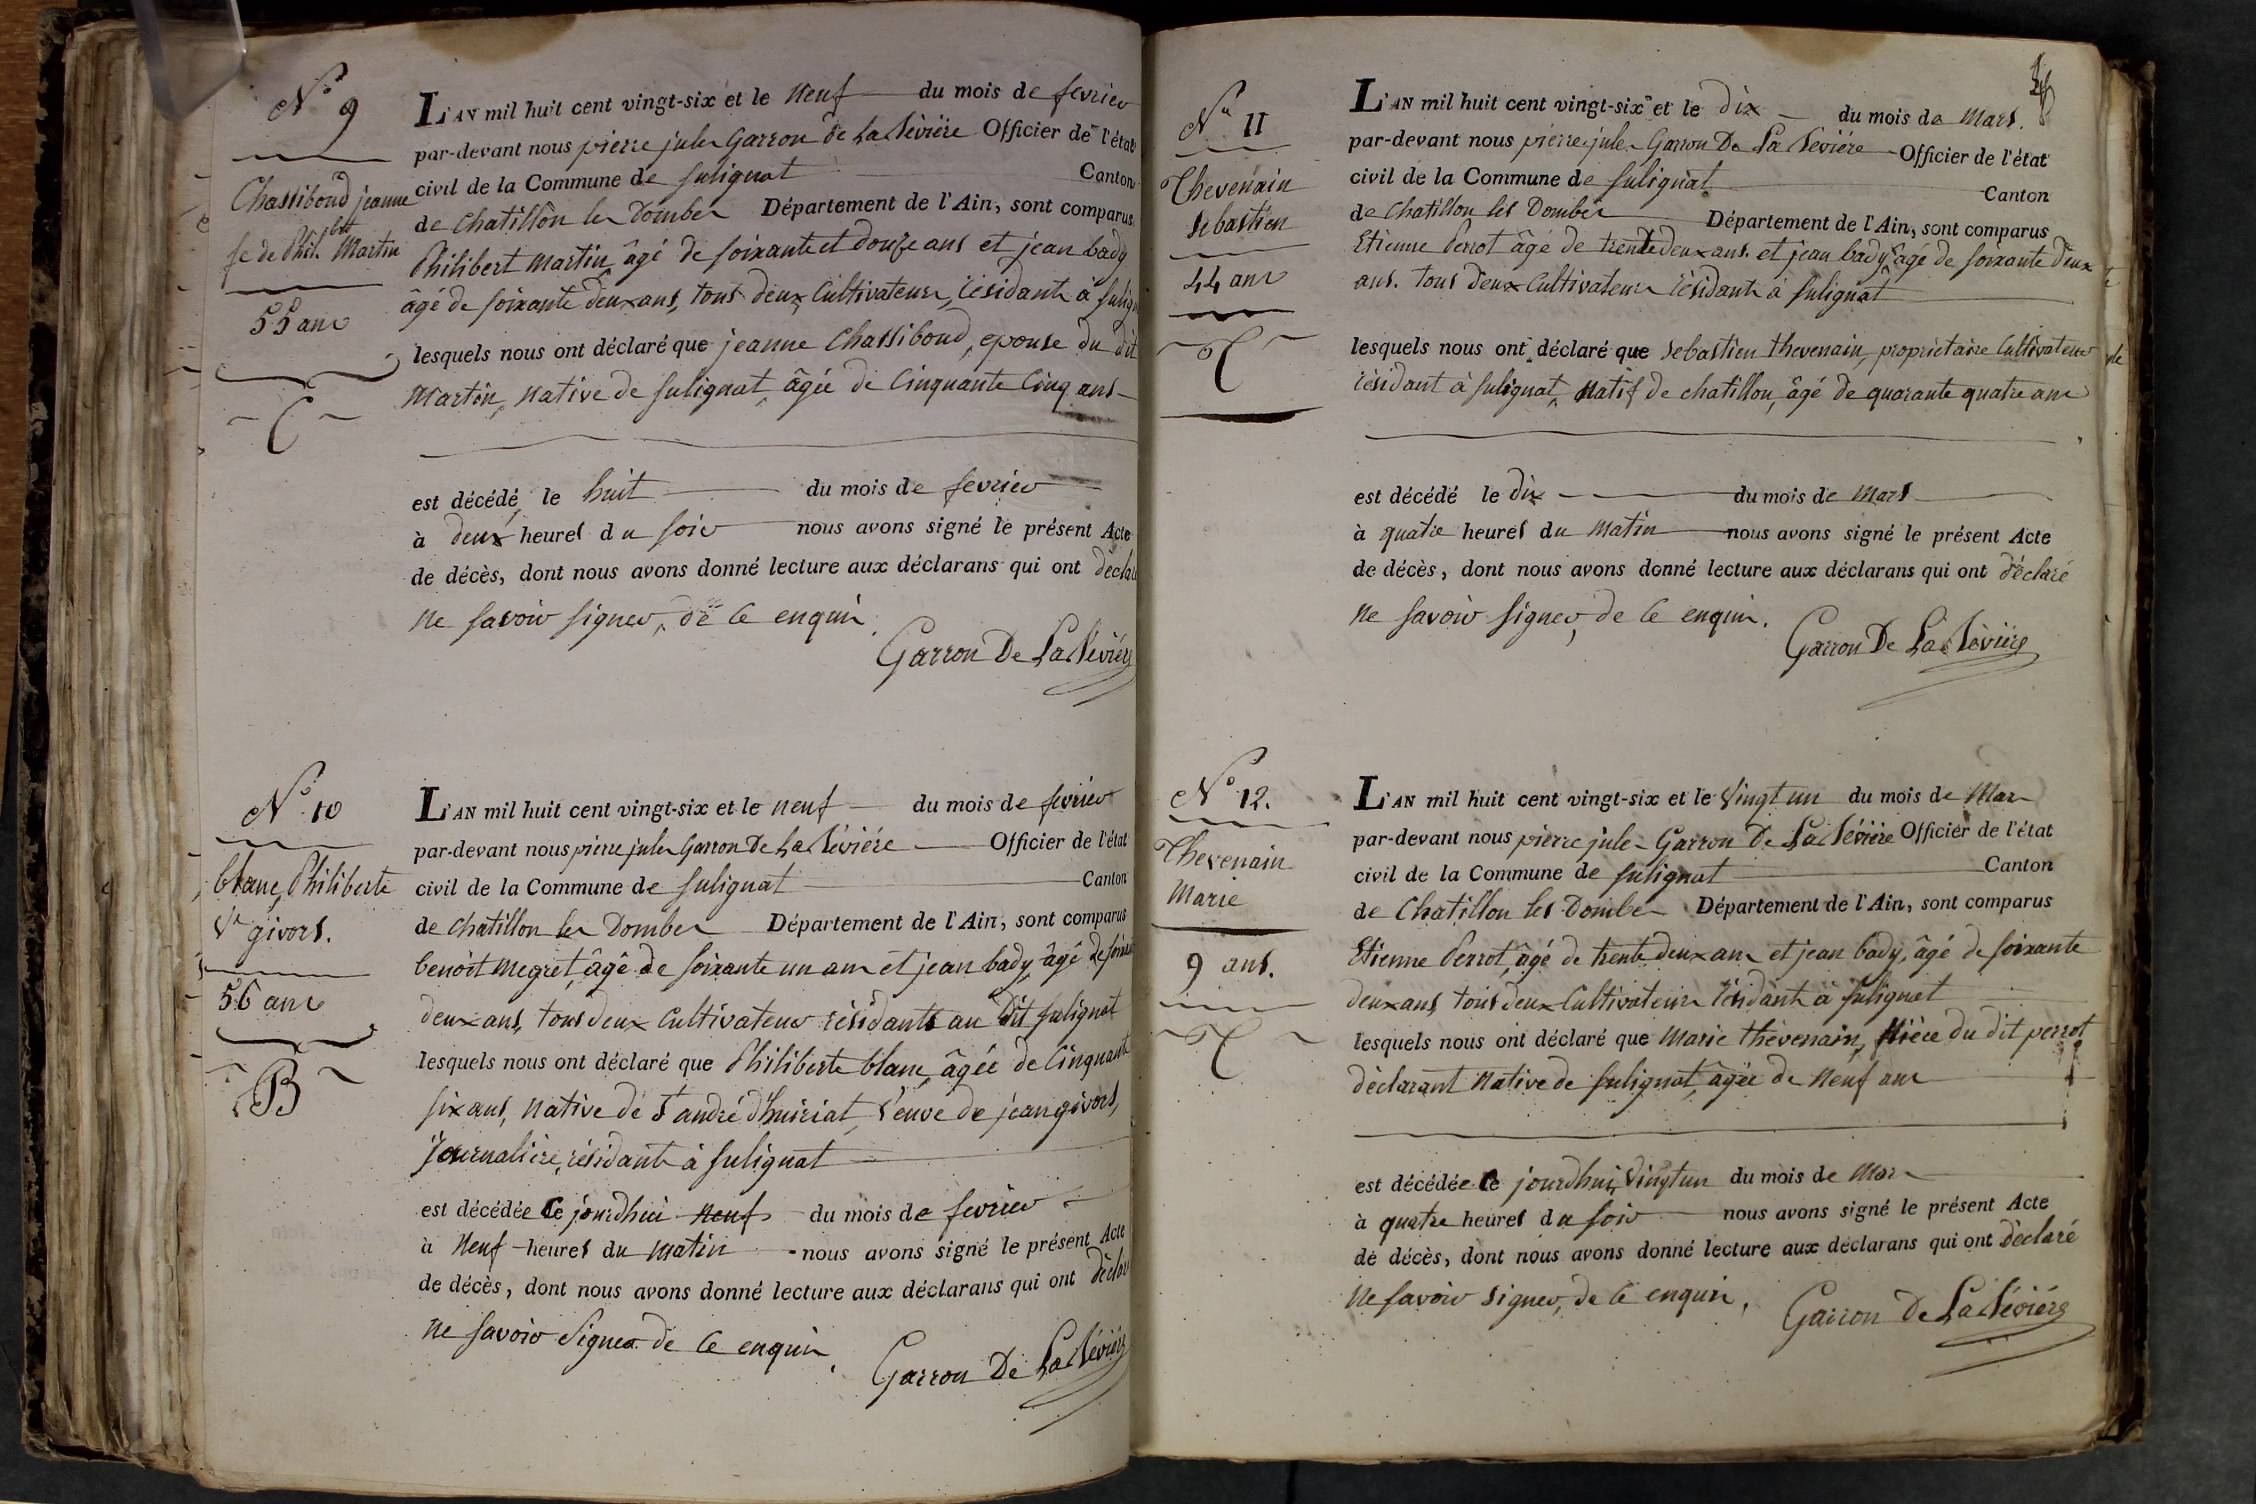 N.° 9
Chassiboud jeanne
fe de Phil.bt Martin
55 ans
C
L'AN mil huit cent vingt-six et le neuf du mois de fevrier
par-devant nous pierre jules Garron de La Bévière Officier de l'état
civil de la Commune de sulignat Canton
de chatillon les Dombes Département de l'Ain, sont comparus
Philibert Martin, âgé de soixante et douze ans et jean bady
âgé de soixante deux ans, tous deux Cultivateurs, résidants à sulign
lesquels nous ont déclaré que jeanne Chassiboud, epouse du dit
Martin, native de sulignat, âgée de Cinquante Cinq ans
est décédé, le huit du mois de fevrier
à deux heures du soir nous avons signé le présent Acte
de décès, dont nous avons donné lecture aux déclarans qui ont déclaré
ne savoir signer, de ce enquis.
Garron De La Bévière
N.° 10
blanc, Philiberte
Ve givors.
56 ans
B
L'AN mil huit cent vingt-six et le neuf du mois de fevrier
par-devant nous pierre jules Garron De La Bévière Officier de l'état
civil de la Commune de sulignat Canton
de chatillon les Dombes Département de l'Ain, sont comparus
benoit Megret, âgé de soixante un ans et jean bady, âgé de soixante
deux ans, tous deux Cultivateurs résidants au dit sulignat
lesquels nous ont déclaré que Philiberte blanc, âgée de Cinquante
six ans, native de St andré d'huiriat, Veuve de jean givors,
Journalière, résidante à sulignat
est décédée Ce jourdhui neuf du mois de fevrier
à Neuf heures du matin nous avons signé le présent Acte
de décès, dont nous avons donné lecture aux déclarans qui ont déclaré
ne savoir Signer de ce enquis.
Garron De La Bévière
N.° 11
Thevenain
sebastien
44 ans
T
L'AN mil huit cent vingt-six et le dix du mois de Mars.
par-devant nous pierre jules Garron De La Bévière Officier de l'état
civil de la Commune de sulignat Canton
de Chatillon les Dombes Département de l'Ain, sont comparus
Etienne Perrot âgé de trente deux ans. et jean bady âgé de soixante deux
ans. tous deux Cultivateurs résidants à sulignat
lesquels nous ont déclaré que Sebastien thevenain, proprietaire Cultivateur
résidant à sulignat, Natif de chatillon, âgé de quarante quatre ans
est décédé le dix du mois de Mars
à quatre heures du Matin nous avons signé le présent Acte
de décès, dont nous avons donné lecture aux déclarans qui ont déclaré
ne savoir signer, de ce enquis.
Garron De La Bévière
N.° 12.
Thevenain
Marie
9 ans.
T
L'AN mil huit cent vingt-six et le Vingt un du mois de Mars
par-devant nous pierre jules Garron De La Bévière Officier de l'état
civil de la Commune de sulignat Canton
de Chatillon les Dombes Département de l'Ain, sont comparus
Etienne Perrot, âgé de trente deux ans et jean bady, âgé de soixante
deux ans, tous deux Cultivateurs résidants à sulignat
lesquels nous ont déclaré que Marie thevenain, Nièce du dit perrot
déclarant Native de sulignat, âgée de Neuf ans
est décédée Ce jourdhui, Vingt un du mois de Mars
à quatre heures du soir nous avons signé le présent Acte
de décès, dont nous avons donné lecture aux déclarans qui ont déclaré
ne savoir signer, de ce enquis.
Garron De La Bévière